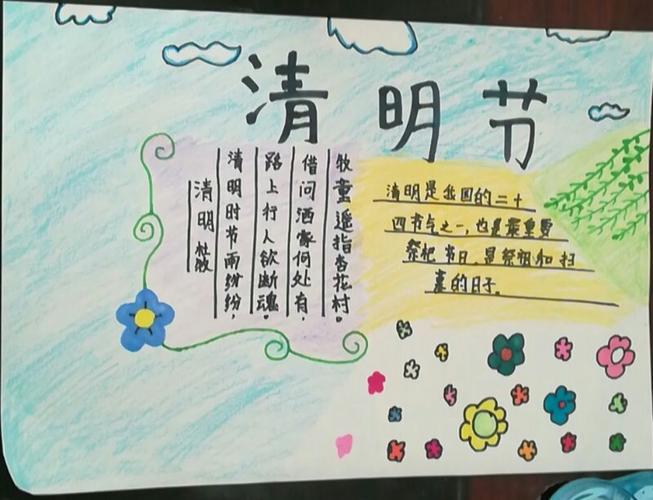 清明节
清明 杜牧
清明时节雨纷纷，
路上行人欲断魂。
借问酒家何处有，
牧童遥指杏花村。
清明是我国的二十
四节气之一，也是最重要
祭祀节日，是祭祖和扫
墓的日子。